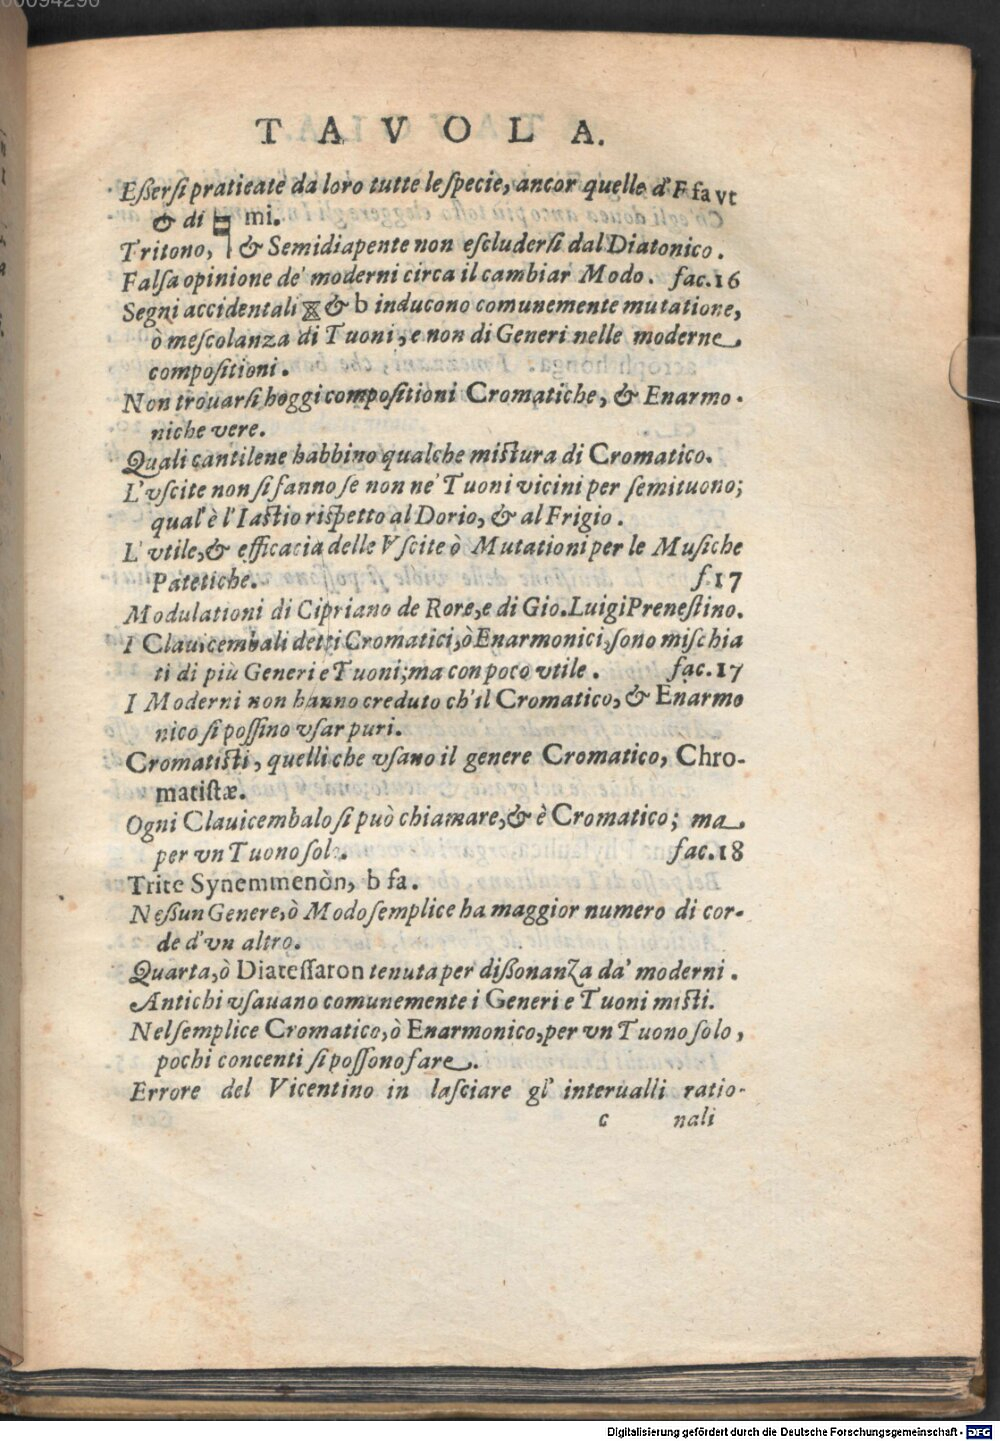 00094290
TAVOLA.
Eßersi pratieate da loro tutte le specie, ancor quelle d'F fa vt
& di ♮ mi.
Tritono, & Semidiapente non escludersi dal Diatonico.
Falsa opinione de' moderni circa il cambiar Modo. fac.16
Segni accidentali ※ & b inducono comunemente mutatione,
ò mescolanza di Tuoni, e non di Generi nelle moderne
compositioni.
Non trouarsi hoggi compositioni Cromatiche, & Enarmo-
niche vere.
Quali cantilene habbino qualche mistura di Cromatico.
L'vscite non si fanno se non ne' Tuoni vicini per semituono;
qual'è l'Iastio rispetto al Dorio, & al Frigio.
L'vtile, & efficacia delle Vscite ò Mutationi per le Musiche
Patetiche. f.17
Modulationi di Cipriano de Rore, e di Gio. Luigi Prenestino.
I Clauicembali detti Cromatici, ò Enarmonici, sono mischia
ti di più Generi e Tuoni; ma con poco vtile. fac.17
I Moderni non hanno creduto ch'il Cromatico, & Enarmo
nico si possino vsar puri.
Cromatisti, quelli che vsano il genere Cromatico, Chro-
matistæ.
Ogni Clauicembalo si può chiamare, & è Cromatico; ma
per vn Tuono solo. fac.18
Trite Synemmenòn, b fa.
Neßun Genere, ò Modo semplice ha maggior numero di cor-
de d'vn altro.
Quarta, ò Diatessaron tenuta per dißonanza da' moderni.
Antichi vsauano comunemente i Generi e Tuoni misti.
Nel semplice Cromatico, ò Enarmonico, per vn Tuono solo,
pochi concenti si possono fare.
Errore del Vicentino in lasciare gl' interualli ratio-
c nali
Digitalisierung gefördert durch die Deutsche Forschungsgemeinschaft - DFG